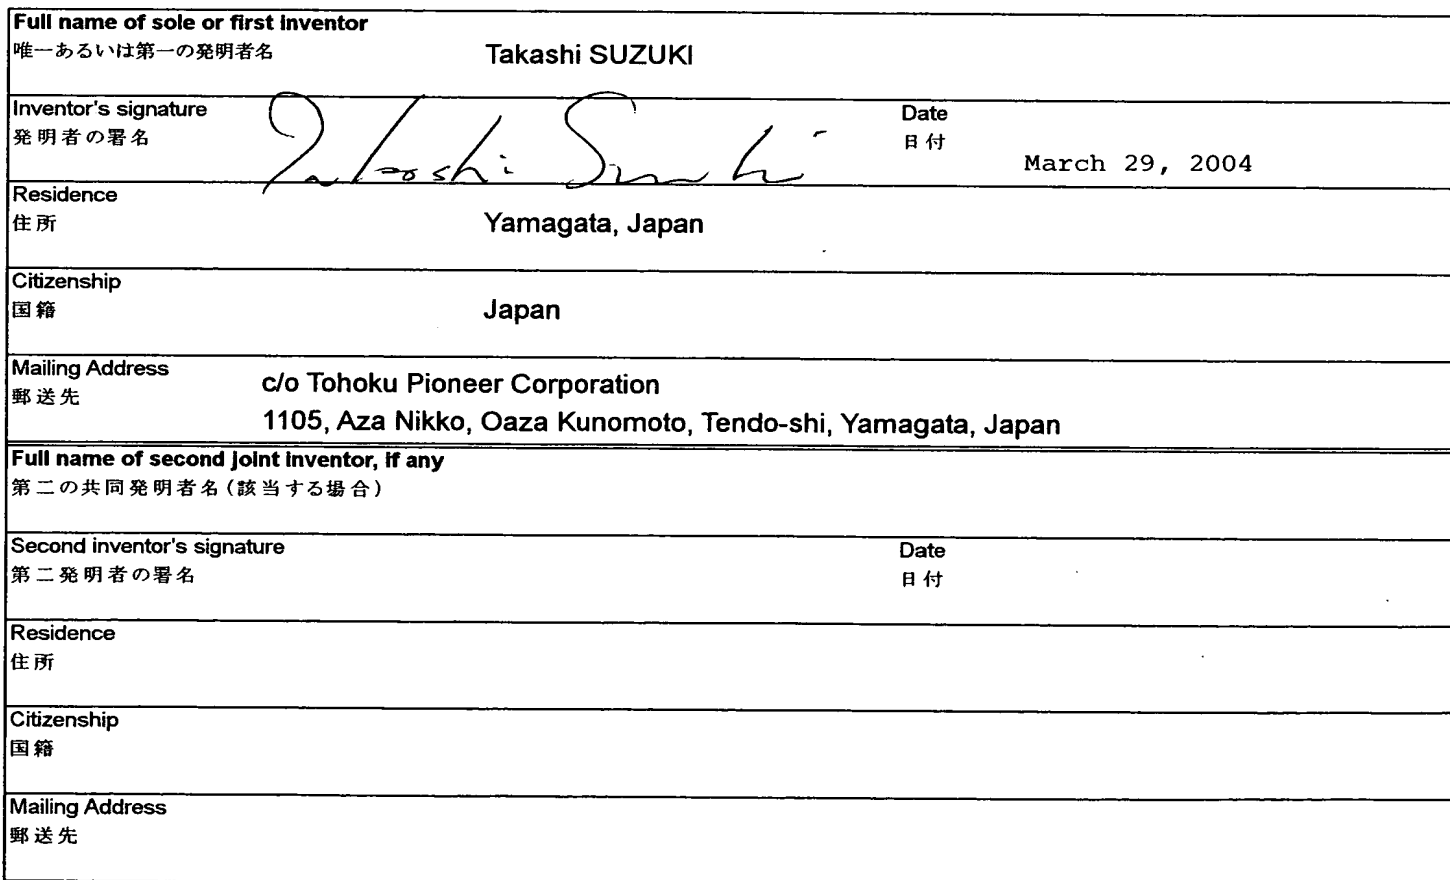 Full name of sole or first inventor
唯一あるいは第一の発明者名 Takashi SUZUKI
Inventor's signature Date
発明者の署名 Takashi Suzuki 日付 March 29, 2004
Residence
住所 Yamagata, Japan
Citizenship
国籍 Japan
Mailing Address
郵送先
c/o Tohoku Pioneer Corporation
1105, Aza Nikko, Oaza Kunomoto, Tendo-shi, Yamagata, Japan
Full name of second joint inventor, if any
第二の共同発明者名(該当する場合)
Second inventor's signature Date
第二発明者の署名 日付
Residence
住所
Citizenship
国籍
Mailing Address
郵送先